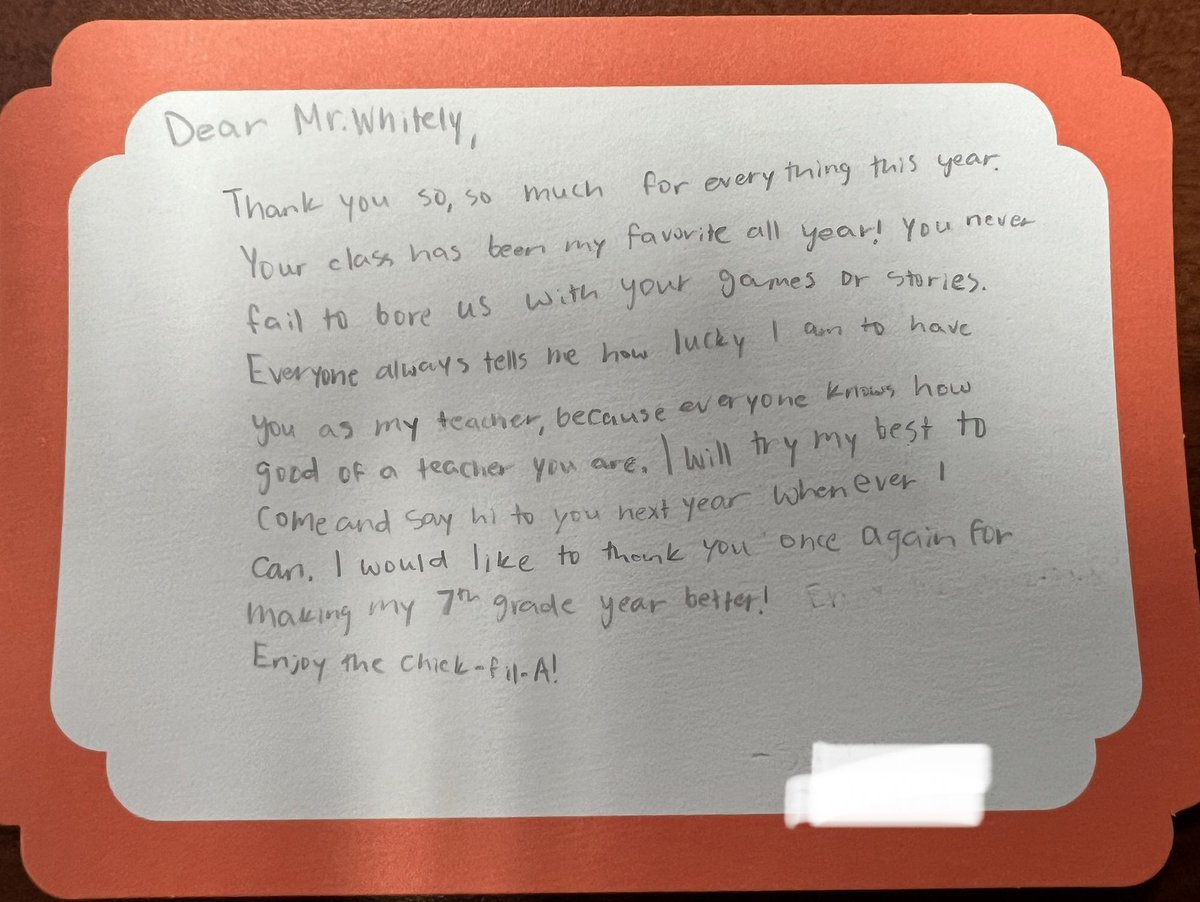 Dear Mr. Whitely,
Thank you so, so much for everything this year.
Your class has been my favorite all year! You never
fail to bore us with your games or stories.
Everyone always tells me how lucky I am to have
you as my teacher, because everyone knows how
good of a teacher you are. I will try my best to
come and say hi to you next year whenever I
can. I would like to thank you once again for
making my 7th grade year better! En
Enjoy the Chick-fil-A!
-